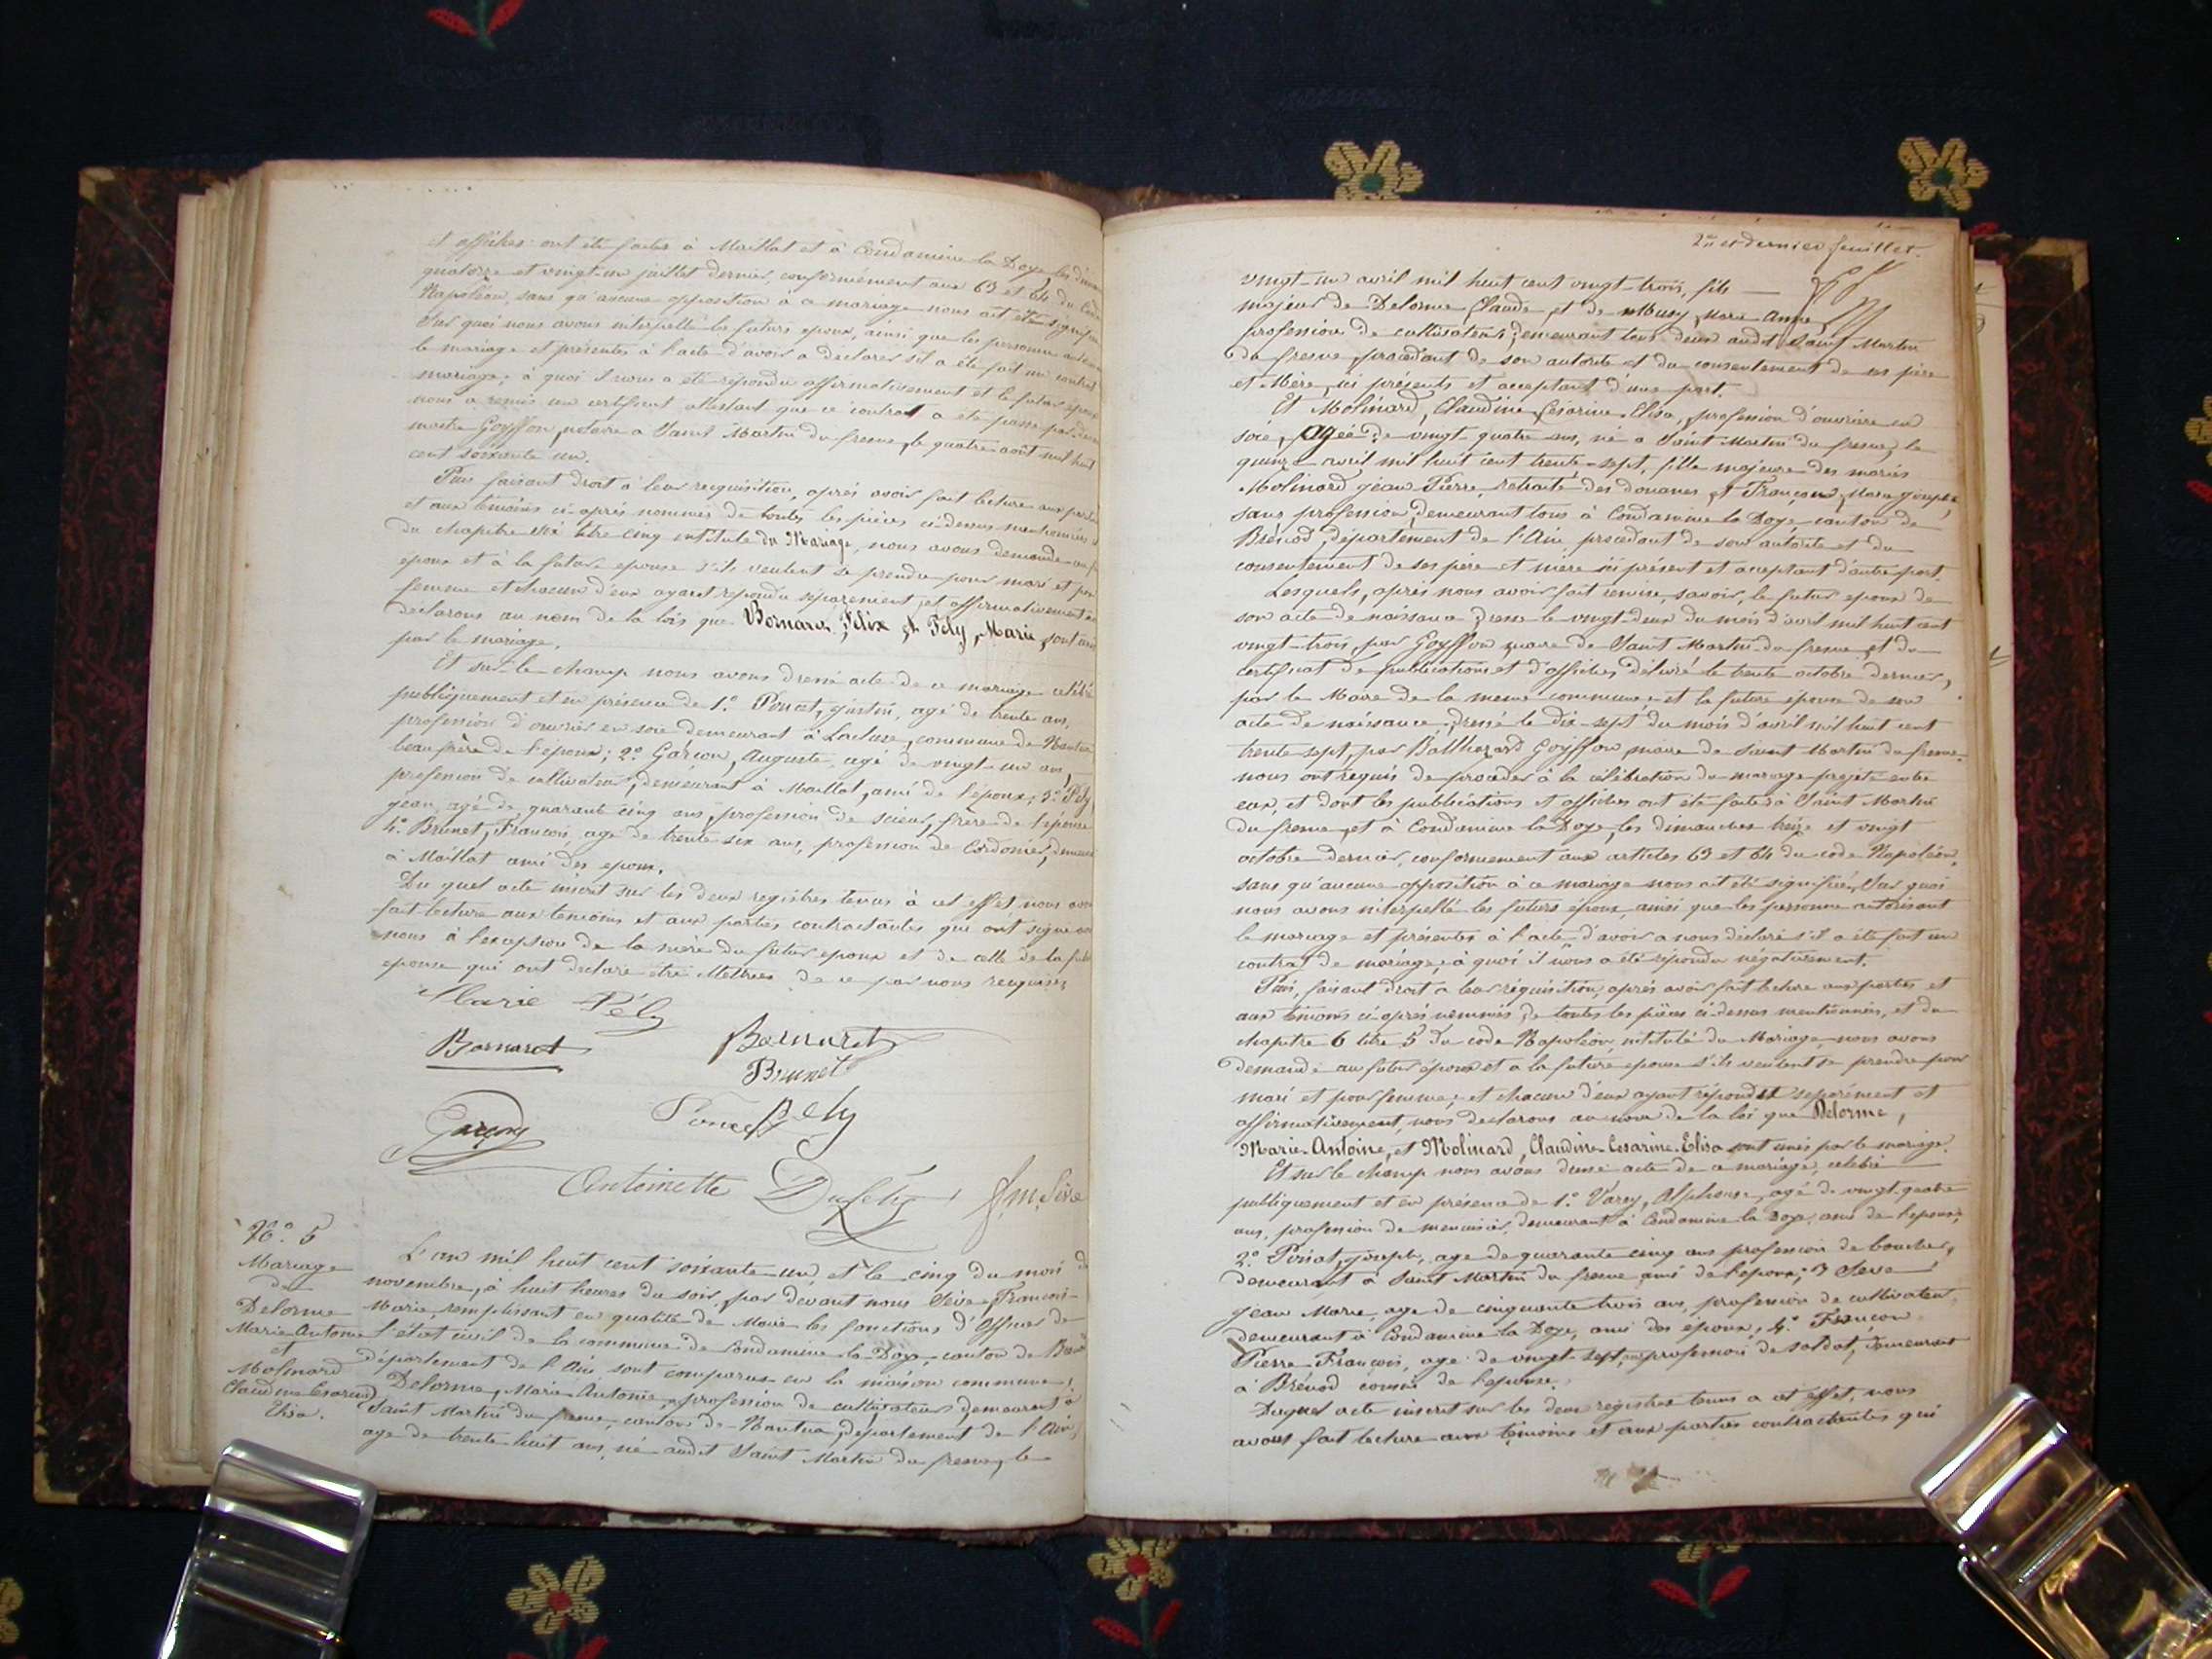 et affiches ont été faites à Maillat et à Condamine la Doye les
quatorze et vingt-un juillet dernier, conformément aux 63 et 64 du Code
Napoléon, sans qu'aucune opposition à ce mariage nous ait été
Sur quoi nous avons interpellé les futurs epoux, ainsi que les personnes
le mariage et présentes à l'acte d'avoir a déclarer s'il a été fait un contrat
mariage; à quoi il nous a été répondu affirmativement et le futur époux
nous a remis un certificat attestant que ce contrat a été passé
maitre Goyffon, notaire a Saint Martin du fresne, le quatre août mil huit
cent soixante un.
Puis faisant droit à leur requisition, après avoir fait lecture aux
et aux témoins ci-après nommés de toutes les pièces ci-dessus mentionnées
du chapitre six titre cinq intitulé du Mariage, nous avons demandé
epoux et à la future epouse s'ils veulent se prendre pour mari et
femme et chacun d'eux ayant répondu séparement et affirmativement
déclarons au nom de la lois que Bornarel, Félix et Pély, Marie sont
par le mariage.
Et sur le champ nous avons dressé acte de ce mariage célébré
publiquement et en présence de 1.° Poncet, Justin, agé de trente ans,
profession d'ouvrier en soie demeurant à Lacluse, commune de
beau frère de l'époux; 2.° Garçon, Auguste, agé de vingt-un ans,
profession de cultivateur, demeurant à Maillat, ami de l'époux; 3.° Pély
jean, agé de quarante cinq ans, profession de scieur, frère de l'épouse
4.° Brunet, François, age de trente six ans, profession de Cordonier,
à Maillat ami des epoux.
Du quel acte inscrit sur les deux registres tenus à cet effet nous
fait lecture aux temoins et aux parties contractantes qui ont signé
nous à l'exception de la mère du futur epoux et de celle de la
epouse qui ont declaré etre illettrées de ce par nous requises
Marie Pély
Bornarel Bornarel
Brunet
Garçon Poncet Pely
Antoinette J. M. Sève
N.° 5
Mariage
de
Delorme
Marie Antoine
et
Molinard
Claudine Cesarine
Elisa.
L'an mil huit cent soixante un, et le cinq du mois de
novembre, à huit heures du soir, par devant nous Sève, François-
Marie, remplissant en qualité de Maire les fonctions d'Officier de
l'état civil de la commune de Condamine la Doye, canton de
département de l'Ain, sont comparus en la maison commune,
Delorme, Marie Antoine, profession de cultivateur, demeurant à
Saint Martin du fresne, canton de Nantua, département de l'Ain,
age de trente huit ans, né audit Saint Martin du fresne, le
2.e et dernier feuillet.
vingt-un avril mil huit cent vingt-trois, fils
majeur de Delorme Claude et de Musy, Marie Anne,
profession de cultivateurs, demeurant tous deux audit Saint Martin
du fresne, procédant de son autorité et du consentement de ses père
et Mère, ici présents et acceptant d'une part.
Et Molinard, Claudine, Césarine, Elisa, profession d'ouvrière en
soie, agée de vingt quatre ans, né a Saint Martin du fresne, le
quinze avril mil huit cent trente-sept, fille majeure des mariés
Molinard jean Pierre, retraité des douanes et Françon, Marie josephe,
sans profession, demeurant tous à Condamine la Doye canton de
Brénod, departement de l'Ain, procédant de son autorité et du
consentement de ses père et mère ici présent et acceptant d'autre part.
Lesquels, après nous avoir fait remise, savoir, le futur epoux de
son acte de naissance dressé le vingt-deux du mois d'avril mil huit cent
vingt-trois, par Goyffon maire de Saint Martin du fresne et du
certificat de publications et d'affiches délivré le trente octobre dernier,
par le Maire de la meme commune; et la future epouse de son
acte de naissance, dressé le dix-sept du mois d'avril mil huit cent
trente sept, par Balthazard Goyffon maire de Saint Martin du fresne
nous ont requis de procéder à la célébration du mariage projeté entre
eux, et dont les publications et affiches ont été faites à Saint Martin
du fresne, et à Condamine la Doye, les dimanches treize et vingt
octobre dernier, conformement aux articles 63 et 64 du code Napoléon,
sans qu'aucune opposition à ce mariage nous ait été signifiée, Sur quoi
nous avons interpellé les futurs époux, ainsi que les personnes autorisant
le mariage et présentes à l'acte d'avoir a nous déclaré s'il a été fait un
contrat de mariage; à quoi il nous a été répondu négativement.
Puis, faisant droit a leur réquisition, après avoir fait lecture aux parties et
aux témoins ci-après nommés, de toutes les pièces ci-dessus mentionnées, et du
chapitre 6 titre 5 du code Napoléon, intitulé du Mariage, nous avons
demandé au futur époux et a la future epouse s'ils veulent se prendre pour
mari et pour femme; et chacun d'eux ayant répondu separément et
affirmativement, nous declarons au nom de la loi que Delorme,
Marie-Antoine, et Molinard, Claudine-Cesarine-Elisa sont unis par le mariage.
Et sur le champ nous avons dressé acte de ce mariage, célébré
publiquement et en présence de 1.° Varey, Alphonse, agé de vingt-quatre
ans, profession de menuisier, demeurant à Condamine la Doye, ami de l'époux,
2.° joseph, age de quarante cinq ans profession de boucher,
demeurant à Saint Martin du fresne ami de l'époux; 3 Seve
jean Marie, age de cinquante trois ans, profession de cultivateur,
demeurant à Condamine la Doye, ami des époux; 4.° Françon
Pierre François, age de vingt-sept ans profession de soldat, demeurant
à Brénod cousin de l'epouse.
Duquel acte inscrit sur les deux registres tenus a cet éffet, nous
avons fait lecture aux témoins et aux parties contractantes qui